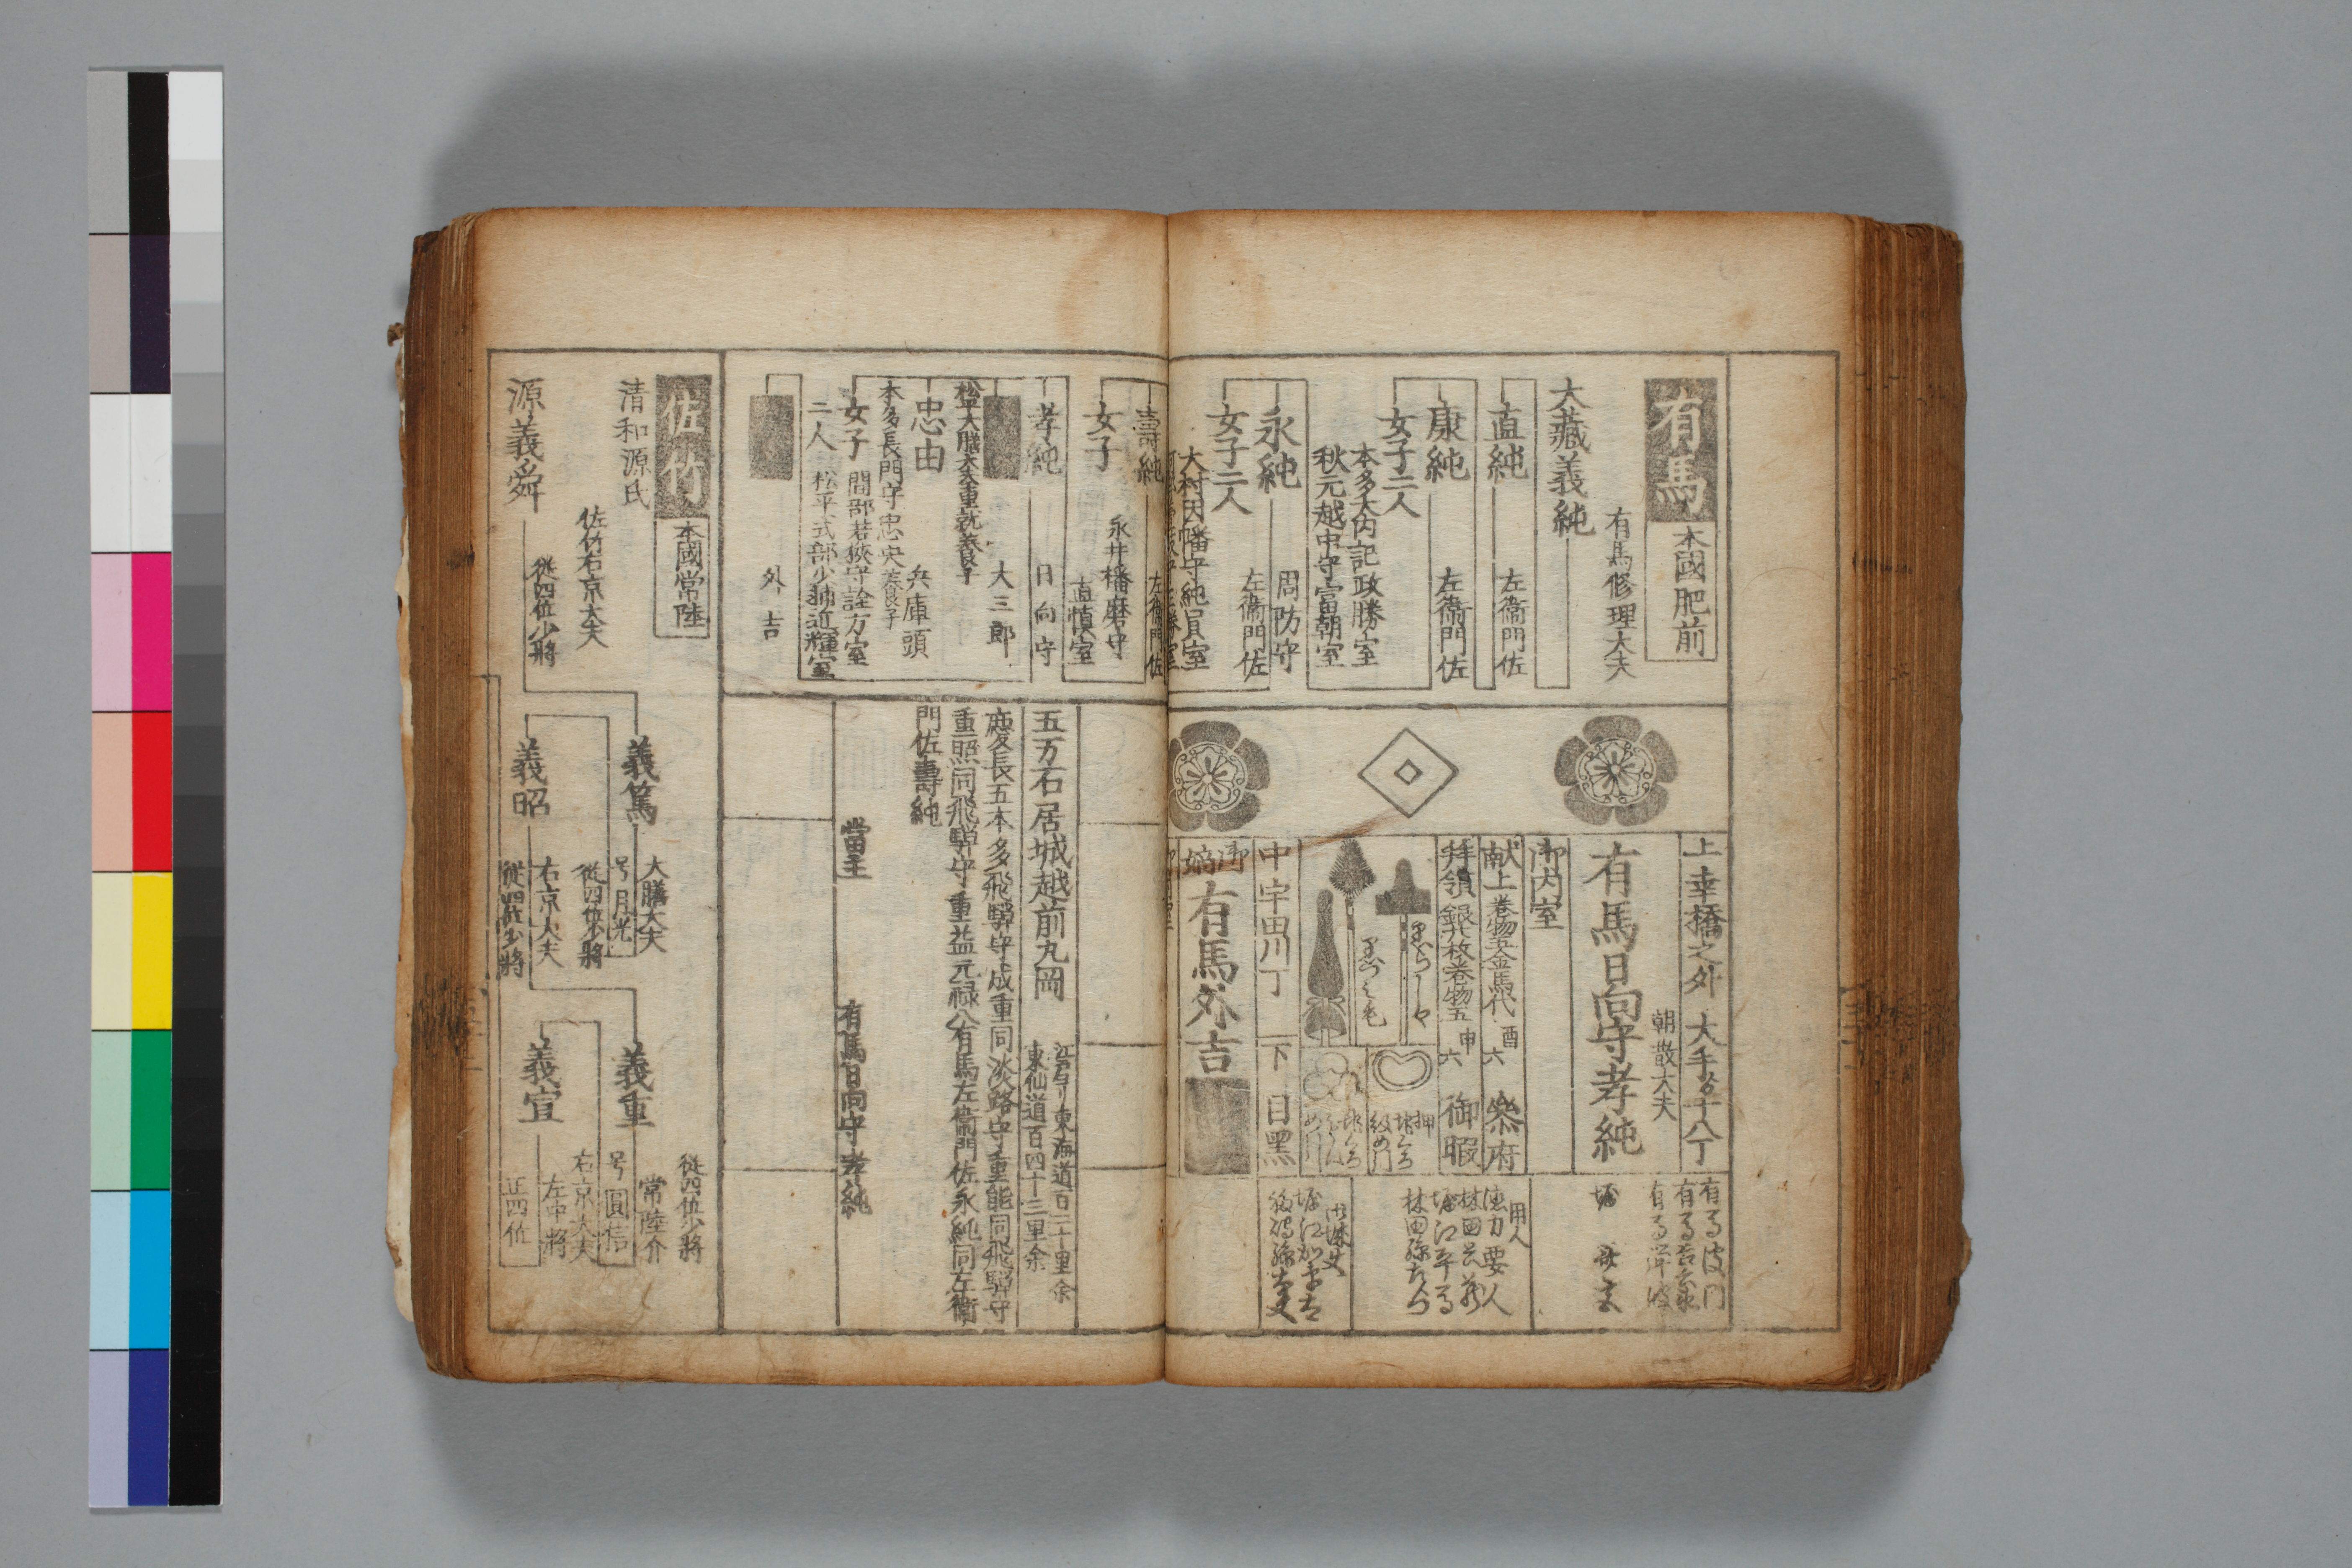 有馬
本國肥前
有馬修理大夫
大藏義純
直純
左衞門佐
康純
左衞門佐
女子二人
本多大内記政勝室
秋元越中守富朝室
永純
周防守
左衞門佐
女子二人
大村因幡守純員室
上幸橋之外 大手ゟ十八丁
朝散大夫
有馬日向守孝純
御内室
献上 巻物五金馬代 酉六 参府
拝領 銀廿枚巻物五 申六 御暇
押
中宇田川丁
下目黑
御嫡
有馬外吉
用人
壽純
左衞門佐
女子
永井播磨守
直慎室
孝純
日向守
大三郎
松平大膳大夫重就養子
忠由
兵庫頭
本多長門守忠央養子
女子二人
間部若狹守詮方室
松平式部少輔近輝室
外吉
五万石居城越前丸岡
江戸ヨリ東海道百三十里余
東仙道百四十三里余
慶長五本多飛騨守成重同淡路守重能同飛騨守
重照同飛騨守重益元禄八有馬左衞門佐永純同左衞
門佐壽純
當主
有馬日向守孝純
佐竹
本國常陸
清和源氏
佐竹右京大夫
源義舜
從四位少將
義篤
大膳大夫
号月光
從四位少將
義昭
右京大夫
從四位少將
義重
從四位少將
常陸介
号圓信
義宣
右京大夫
左中將
正四位